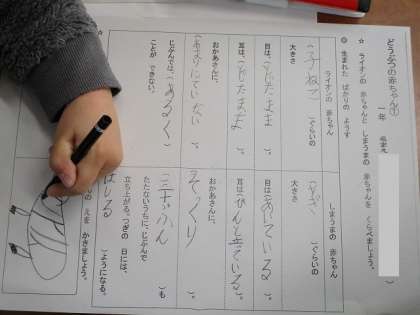 どうぶつの赤ちゃん①
一年
☆ ライオンの 赤ちゃんと しまうまの 赤ちゃんを くらべましょう。
◎ 生まれた ばかりの ようす
ライオンの 赤ちゃん
大きさ
(こねこ)ぐらいの
目は、(とじたまま)。
耳は、(とじたまま)。
おかあさんに、
(あまりにていない)。
じぶんでは、(あるく)
ことが できない。
しまうまの 赤ちゃん
大きさ
(やぎ)ぐらいの
目は(あいている)。
耳は(ぴんと立っている)。
おかあさんに、
そっくり
三十ぷん)も
たたないうちに、じぶんで
立ち上がる。つぎの 日には、
はしる)ようになる。
えを かきましょう。